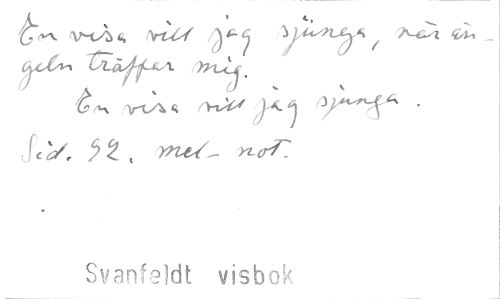 En visa vill jag sjünga, när än-
geln träffar mig.
En visa vill jag sjunga.
Sid. 92. mel- not.
Svanfeldt visbok